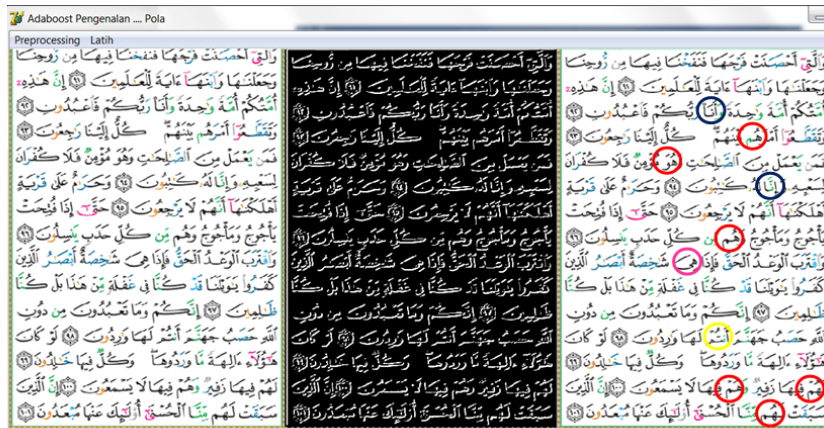 Adaboost Pengenalan .... Pola
Preprocessing Latih
وَالَّتِىٓ أَحْصَنَتْ فَرْجَهَا فَنَفَخْنَا فِيهَا مِن رُّوحِنَا
وَجَعَلْنَٰهَا وَابْنَهَآ ءَايَةً لِّلْعَٰلَمِينَ ٩١ إِنَّ هَٰذِهِۦٓ
أُمَّتُكُمْ أُمَّةً وَٰحِدَةً وَأَنَا رَبُّكُمْ فَاعْبُدُونِ ٩٢
وَتَقَطَّعُوٓا أَمْرَهُم بَيْنَهُمْ كُلٌّ إِلَيْنَا رَٰجِعُونَ ٩٣
فَمَن يَعْمَلْ مِنَ الصَّٰلِحَٰتِ وَهُوَ مُؤْمِنٌ فَلَا كُفْرَانَ
لِسَعْيِهِۦ وَإِنَّا لَهُۥ كَٰتِبُونَ ٩٤ وَحَرَٰمٌ عَلَىٰ قَرْيَةٍ
أَهْلَكْنَٰهَآ أَنَّهُمْ لَا يَرْجِعُونَ ٩٥ حَتَّىٰٓ إِذَا فُتِحَتْ
يَأْجُوجُ وَمَأْجُوجُ وَهُم مِّن كُلِّ حَدَبٍ يَنسِلُونَ ٩٦
وَاقْتَرَبَ الْوَعْدُ الْحَقُّ فَإِذَا هِىَ شَٰخِصَةٌ أَبْصَٰرُ الَّذِينَ
كَفَرُوا يَٰوَيْلَنَا قَدْ كُنَّا فِى غَفْلَةٍ مِّنْ هَٰذَا بَلْ كُنَّا
ظَٰلِمِينَ ٩٧ إِنَّكُمْ وَمَا تَعْبُدُونَ مِن دُونِ
اللَّهِ حَصَبُ جَهَنَّمَ أَنتُمْ لَهَا وَٰرِدُونَ ٩٨ لَوْ كَانَ
هَٰٓؤُلَآءِ ءَالِهَةً مَّا وَرَدُوهَا وَكُلٌّ فِيهَا خَٰلِدُونَ ٩٩
لَهُمْ فِيهَا زَفِيرٌ وَهُمْ فِيهَا لَا يَسْمَعُونَ ١٠٠ إِنَّ الَّذِينَ
سَبَقَتْ لَهُم مِّنَّا الْحُسْنَىٰٓ أُولَٰٓئِكَ عَنْهَا مُبْعَدُونَ ١٠١
وَالَّتِىٓ أَحْصَنَتْ فَرْجَهَا فَنَفَخْنَا فِيهَا مِن رُّوحِنَا
وَجَعَلْنَٰهَا وَابْنَهَآ ءَايَةً لِّلْعَٰلَمِينَ ٩١ إِنَّ هَٰذِهِۦٓ
أُمَّتُكُمْ أُمَّةً وَٰحِدَةً وَأَنَا رَبُّكُمْ فَاعْبُدُونِ ٩٢
وَتَقَطَّعُوٓا أَمْرَهُم بَيْنَهُمْ كُلٌّ إِلَيْنَا رَٰجِعُونَ ٩٣
فَمَن يَعْمَلْ مِنَ الصَّٰلِحَٰتِ وَهُوَ مُؤْمِنٌ فَلَا كُفْرَانَ
لِسَعْيِهِۦ وَإِنَّا لَهُۥ كَٰتِبُونَ ٩٤ وَحَرَٰمٌ عَلَىٰ قَرْيَةٍ
أَهْلَكْنَٰهَآ أَنَّهُمْ لَا يَرْجِعُونَ ٩٥ حَتَّىٰٓ إِذَا فُتِحَتْ
يَأْجُوجُ وَمَأْجُوجُ وَهُم مِّن كُلِّ حَدَبٍ يَنسِلُونَ ٩٦
وَاقْتَرَبَ الْوَعْدُ الْحَقُّ فَإِذَا هِىَ شَٰخِصَةٌ أَبْصَٰرُ الَّذِينَ
كَفَرُوا يَٰوَيْلَنَا قَدْ كُنَّا فِى غَفْلَةٍ مِّنْ هَٰذَا بَلْ كُنَّا
ظَٰلِمِينَ ٩٧ إِنَّكُمْ وَمَا تَعْبُدُونَ مِن دُونِ
اللَّهِ حَصَبُ جَهَنَّمَ أَنتُمْ لَهَا وَٰرِدُونَ ٩٨ لَوْ كَانَ
هَٰٓؤُلَآءِ ءَالِهَةً مَّا وَرَدُوهَا وَكُلٌّ فِيهَا خَٰلِدُونَ ٩٩
لَهُمْ فِيهَا زَفِيرٌ وَهُمْ فِيهَا لَا يَسْمَعُونَ ١٠٠ إِنَّ الَّذِينَ
سَبَقَتْ لَهُم مِّنَّا الْحُسْنَىٰٓ أُولَٰٓئِكَ عَنْهَا مُبْعَدُونَ ١٠١
وَالَّتِىٓ أَحْصَنَتْ فَرْجَهَا فَنَفَخْنَا فِيهَا مِن رُّوحِنَا
وَجَعَلْنَٰهَا وَابْنَهَآ ءَايَةً لِّلْعَٰلَمِينَ ٩١ إِنَّ هَٰذِهِۦٓ
أُمَّتُكُمْ أُمَّةً وَٰحِدَةً وَأَنَا رَبُّكُمْ فَاعْبُدُونِ ٩٢
وَتَقَطَّعُوٓا أَمْرَهُم بَيْنَهُمْ كُلٌّ إِلَيْنَا رَٰجِعُونَ ٩٣
فَمَن يَعْمَلْ مِنَ الصَّٰلِحَٰتِ وَهُوَ مُؤْمِنٌ فَلَا كُفْرَانَ
لِسَعْيِهِۦ وَإِنَّا لَهُۥ كَٰتِبُونَ ٩٤ وَحَرَٰمٌ عَلَىٰ قَرْيَةٍ
أَهْلَكْنَٰهَآ أَنَّهُمْ لَا يَرْجِعُونَ ٩٥ حَتَّىٰٓ إِذَا فُتِحَتْ
يَأْجُوجُ وَمَأْجُوجُ وَهُم مِّن كُلِّ حَدَبٍ يَنسِلُونَ ٩٦
وَاقْتَرَبَ الْوَعْدُ الْحَقُّ فَإِذَا هِىَ شَٰخِصَةٌ أَبْصَٰرُ الَّذِينَ
كَفَرُوا يَٰوَيْلَنَا قَدْ كُنَّا فِى غَفْلَةٍ مِّنْ هَٰذَا بَلْ كُنَّا
ظَٰلِمِينَ ٩٧ إِنَّكُمْ وَمَا تَعْبُدُونَ مِن دُونِ
اللَّهِ حَصَبُ جَهَنَّمَ أَنتُمْ لَهَا وَٰرِدُونَ ٩٨ لَوْ كَانَ
هَٰٓؤُلَآءِ ءَالِهَةً مَّا وَرَدُوهَا وَكُلٌّ فِيهَا خَٰلِدُونَ ٩٩
لَهُمْ فِيهَا زَفِيرٌ وَهُمْ فِيهَا لَا يَسْمَعُونَ ١٠٠ إِنَّ الَّذِينَ
سَبَقَتْ لَهُم مِّنَّا الْحُسْنَىٰٓ أُولَٰٓئِكَ عَنْهَا مُبْعَدُونَ ١٠١